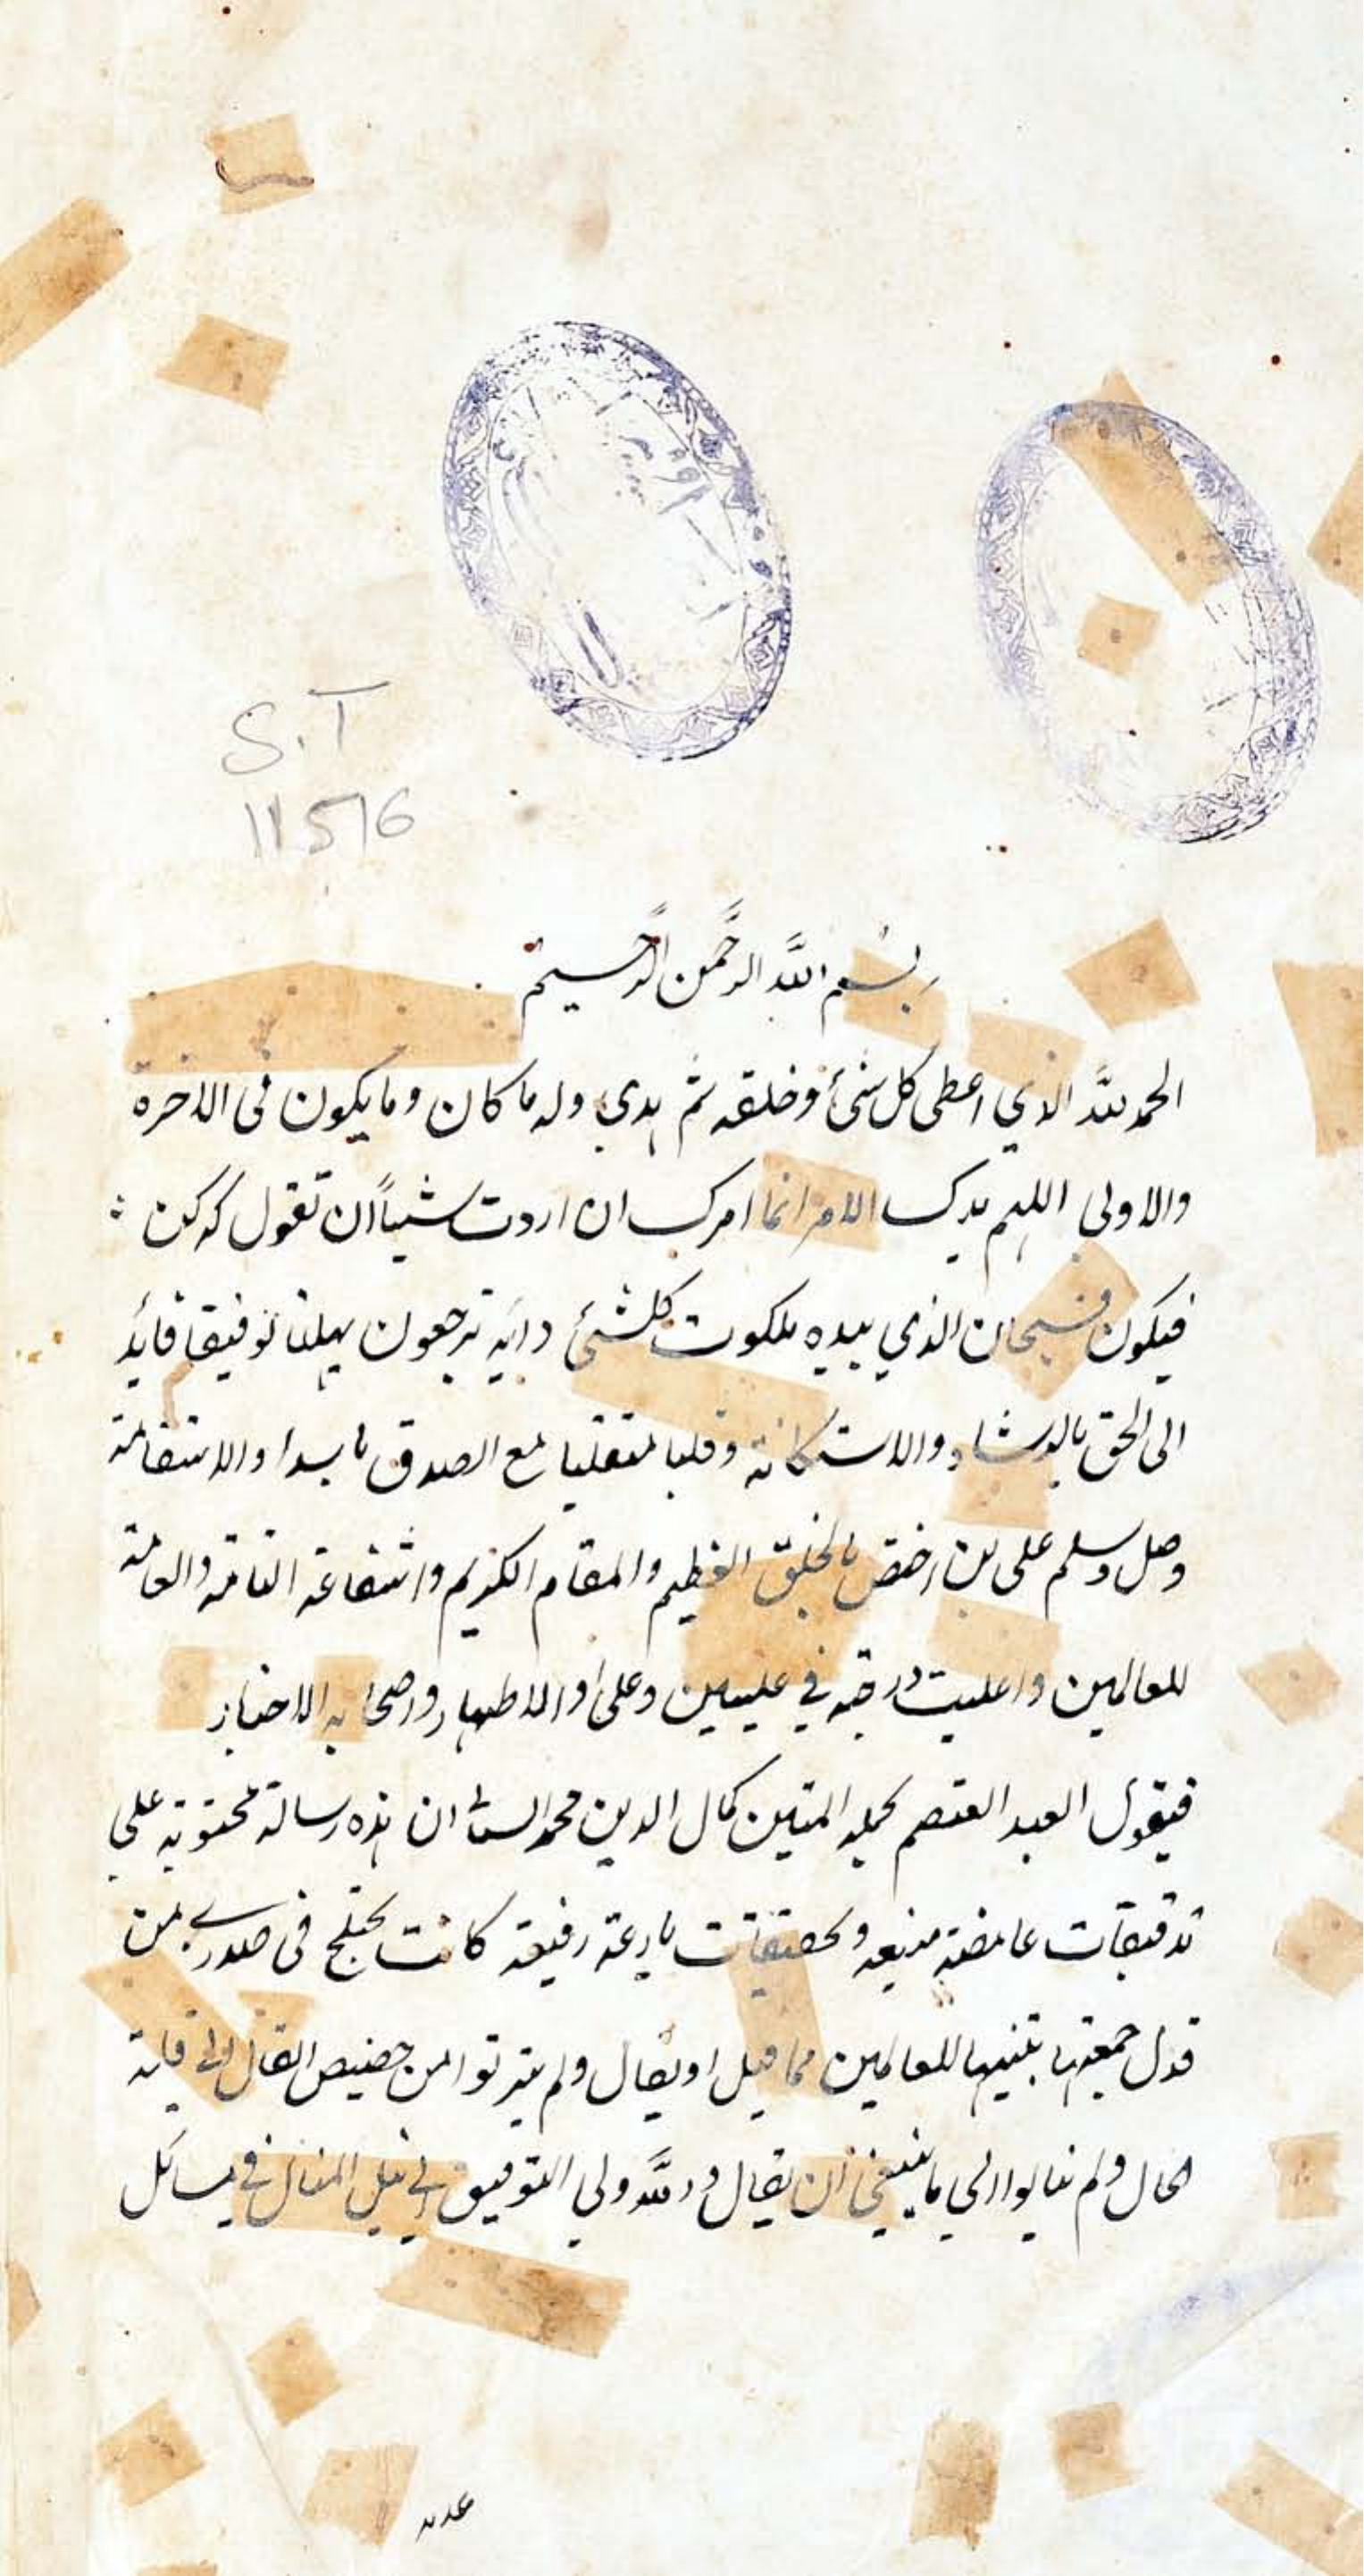 S.T
11516
بسم الله الرحمن الرحيم
الحمد لله الذي اعطى كل شئ وخلقه ثم هدى وله ما كان وما يكون فى الاخرة
والاولى اللهم بيدك الامر انما امرك ان اردت شياً ان تقول له كن
فيكون فسبحان الذي بيده ملكوت كلشئ واليه ترجعون توفيقا قائد
الى الحق بالرشاد والاستكانة وقلبا متقلبا مع الصدق والاستقامة
وصل وسلم على من اختص بالخلق العظيم والمقام الكريم واشفاعة التامة والعامة
للعالمين واعليت درجته في عليين وعلى اولاد الاطهار واصحابه الاخيار
فيقول العبد المعتصم بحبله المتين كمال الدين محمد ان هذه رسالة محتوية على
تدقيقات غامضة منيعه وتحقيقات بارعة رفيعة كانت تختلج فى صدري من
جمعتها تنبيها للعالمين مما قيل او يقال ولم من حضيض القال الى
الحال ولم ينالوا الي ما ينبغي ان يقال والله ولي التوفيق في نيل المنال في مسائل
عدد